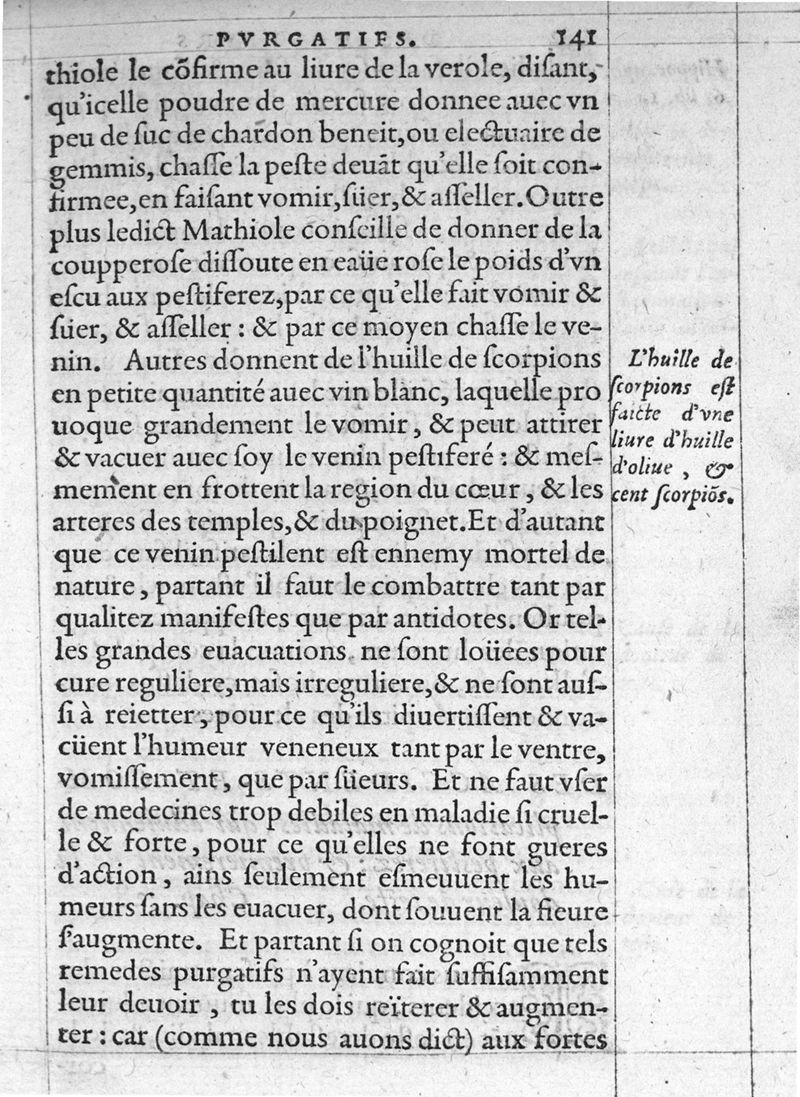 PVRGATIFS. 141
thiole le cõfirme au liure de la verole, diſant,
qu'icelle poudre de mercure donnee auec vn
peu de ſuc de chardon beneit, ou electuaire de
gemmis, chaſſe la peſte deuãt qu'elle ſoit con-
firmee, en faiſant vomir, ſüer, & aſſeller. Outre
plus ledict Mathiole conſeille de donner de la
coupperoſe diſſoute en eaüe roſe le poids d'vn
eſcu aux peſtiferez, par ce qu'elle fait vomir &
ſüer, & aſſeller : & par ce moyen chaſſe le ve-
nin. Autres donnent de l'huille de ſcorpions
en petite quantité auec vin blanc, laquelle pro
uoque grandement le vomir, & peut attirer
& vacuer auec ſoy le venin peſtiferé : & meſ-
mement en frottent la region du cœur, & les
arteres des temples, & du poignet. Et d'autant
que ce venin peſtilent eſt ennemy mortel de
nature, partant il faut le combattre tant par
qualitez manifeſtes que par antidotes. Or tel-
les grandes euacuations ne ſont loüees pour
cure reguliere, mais irreguliere, & ne ſont auſ-
ſi à reietter, pour ce qu'ils diuertiſſent & va-
cüent l'humeur veneneux tant par le ventre,
vomiſſement, que par ſüeurs. Et ne faut vſer
de medecines trop debiles en maladie ſi cruel-
le & forte, pour ce qu'elles ne font gueres
d'action, ains ſeulement eſmeuuent les hu-
meurs ſans les euacuer, dont ſouuent la fieure
ſ'augmente. Et partant ſi on cognoit que tels
remedes purgatifs n'ayent fait ſuffiſamment
leur deuoir, tu les dois reïterer & augmen-
ter : car (comme nous auons dict) aux fortes
L'huille de
ſcorpions eſt
faicte d'vne
liure d'huille
d'oliue, &
cent ſcorpiõs.